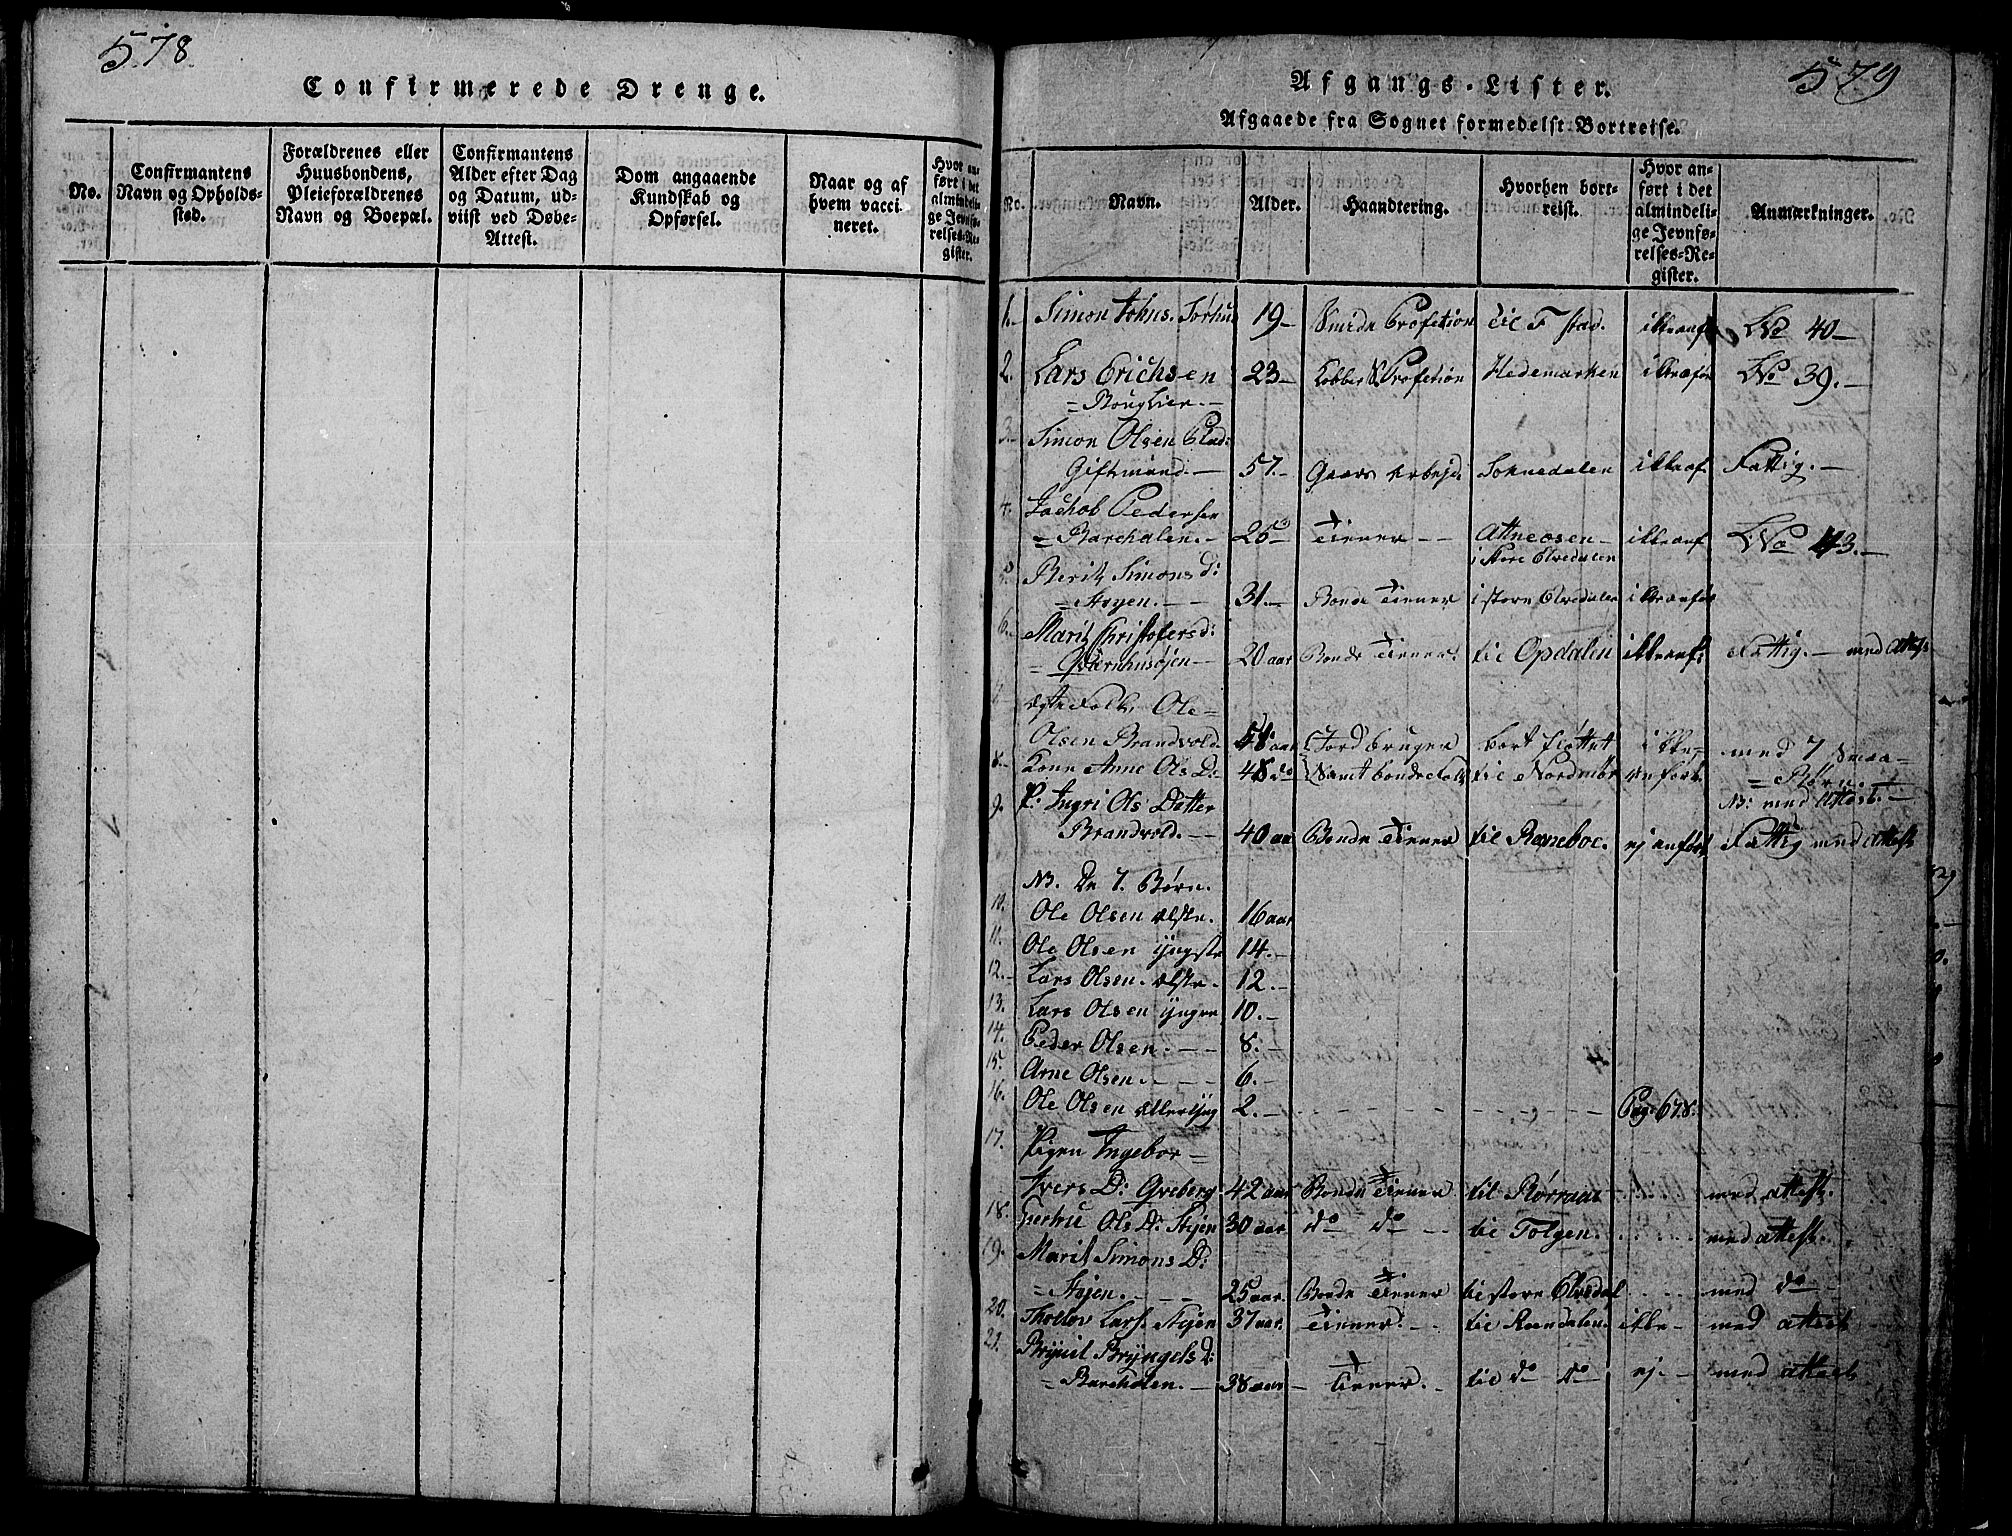 578.
Confirmerede Drenge.
No.
Confirmantens Navn og Opholdssted.
Forældrenes eller Huusbondens, Pleieforældrenes Navn og Boepæl.
Confirmantens Alder efter Dag og Datum, udviist ved Døbe-Attest.
Dom angaaende Kundskab og Opførsel.
Naar og af hvem vaccineret.
Hvor anført i det almindelige Jevnførelses-Register.
579
Afgangs-Lister.
Afgaaede fra Sognet formedelst Bortreise.
No.
Navn.
Alder.
Haandtering.
Hvorhen bortreist.
Hvor anført i det almindelige Jevnførelses-Register.
Anmærkninger.
1. Simon Johns. Sørhus 19- Smede Profetion til F stad. No 40-
2. Lars Erichsen 23- Profetion Hedemarken No 39.-
3. Simon Olsen
Giftmand.- 57.- Gaars arbejd. Soknedalen Fattig.-
4. Jachob Pedersen
= Barchalen.- 25 Tienner -- Attneosen- No 43.-
i store Elvedalen
5. Berit Simons d:
= Støyen.-- 31.- Bonde Tienner i store Elvedalen
6. Marit Christofersd:
20 aar Bonde Tienner. til Opdalen Fattig.- med Attest
7. Ægtefolk, Ole=
Olsen Brandvold. aar Jordbruger bort fløttet med 7 smaa=
8. Kone Anne Ols D: 48 do til Nordmør anført = Børn
N: med Attest.-
9. P: Ingri Ols Datter
Brandvold.-- 40 aar Bonde Tienner til ej anført Fattig med Attest
NB. De 7. Børn.
10. Ole Olsen ælste. 16 aar
11. Ole Olsen yngste 14.-
12. Lars Olsen. ælste. 12.-
13. Lars Olsen yngre 10.-
14. Peder Olsen.-- 8.-
15. Arne Olsen.--- 6.-
16. Ole Olsen alleryng 2.- Pag: 678.
17. Pigen Ingebor=
Ivers D: 42 aar Bonde Tienner til Rørraas med attest.
18. Gertru Ols D: Støjen 30 aar do do -- til Tolgen. med attest.
19. Marit Simons D:
= Støjen.--- 25 aar. Bonde Tienner til store Elvedal med do -
20. Lars. Støjen 37 aar. Tienner.-- til ikke - med attest
21. Bryngels D:
= Barchalen.- 38 aar - Tienner.- til do do ej.- med attest